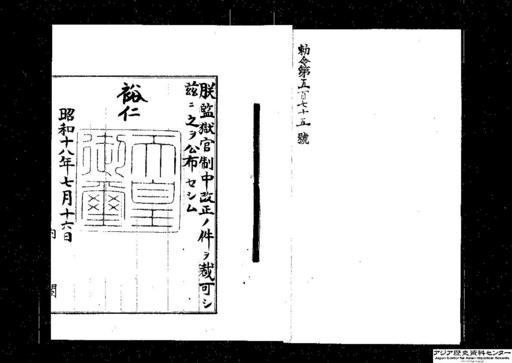 勅令第五百七十五號
朕監獄官制中改正ノ件ヲ裁可シ
茲ニ之ヲ公布セシム
裕仁
天皇御璽
昭和十八年七月十六日
内閣
アジア歴史資料センター
Japan Center for Asian Historical Records